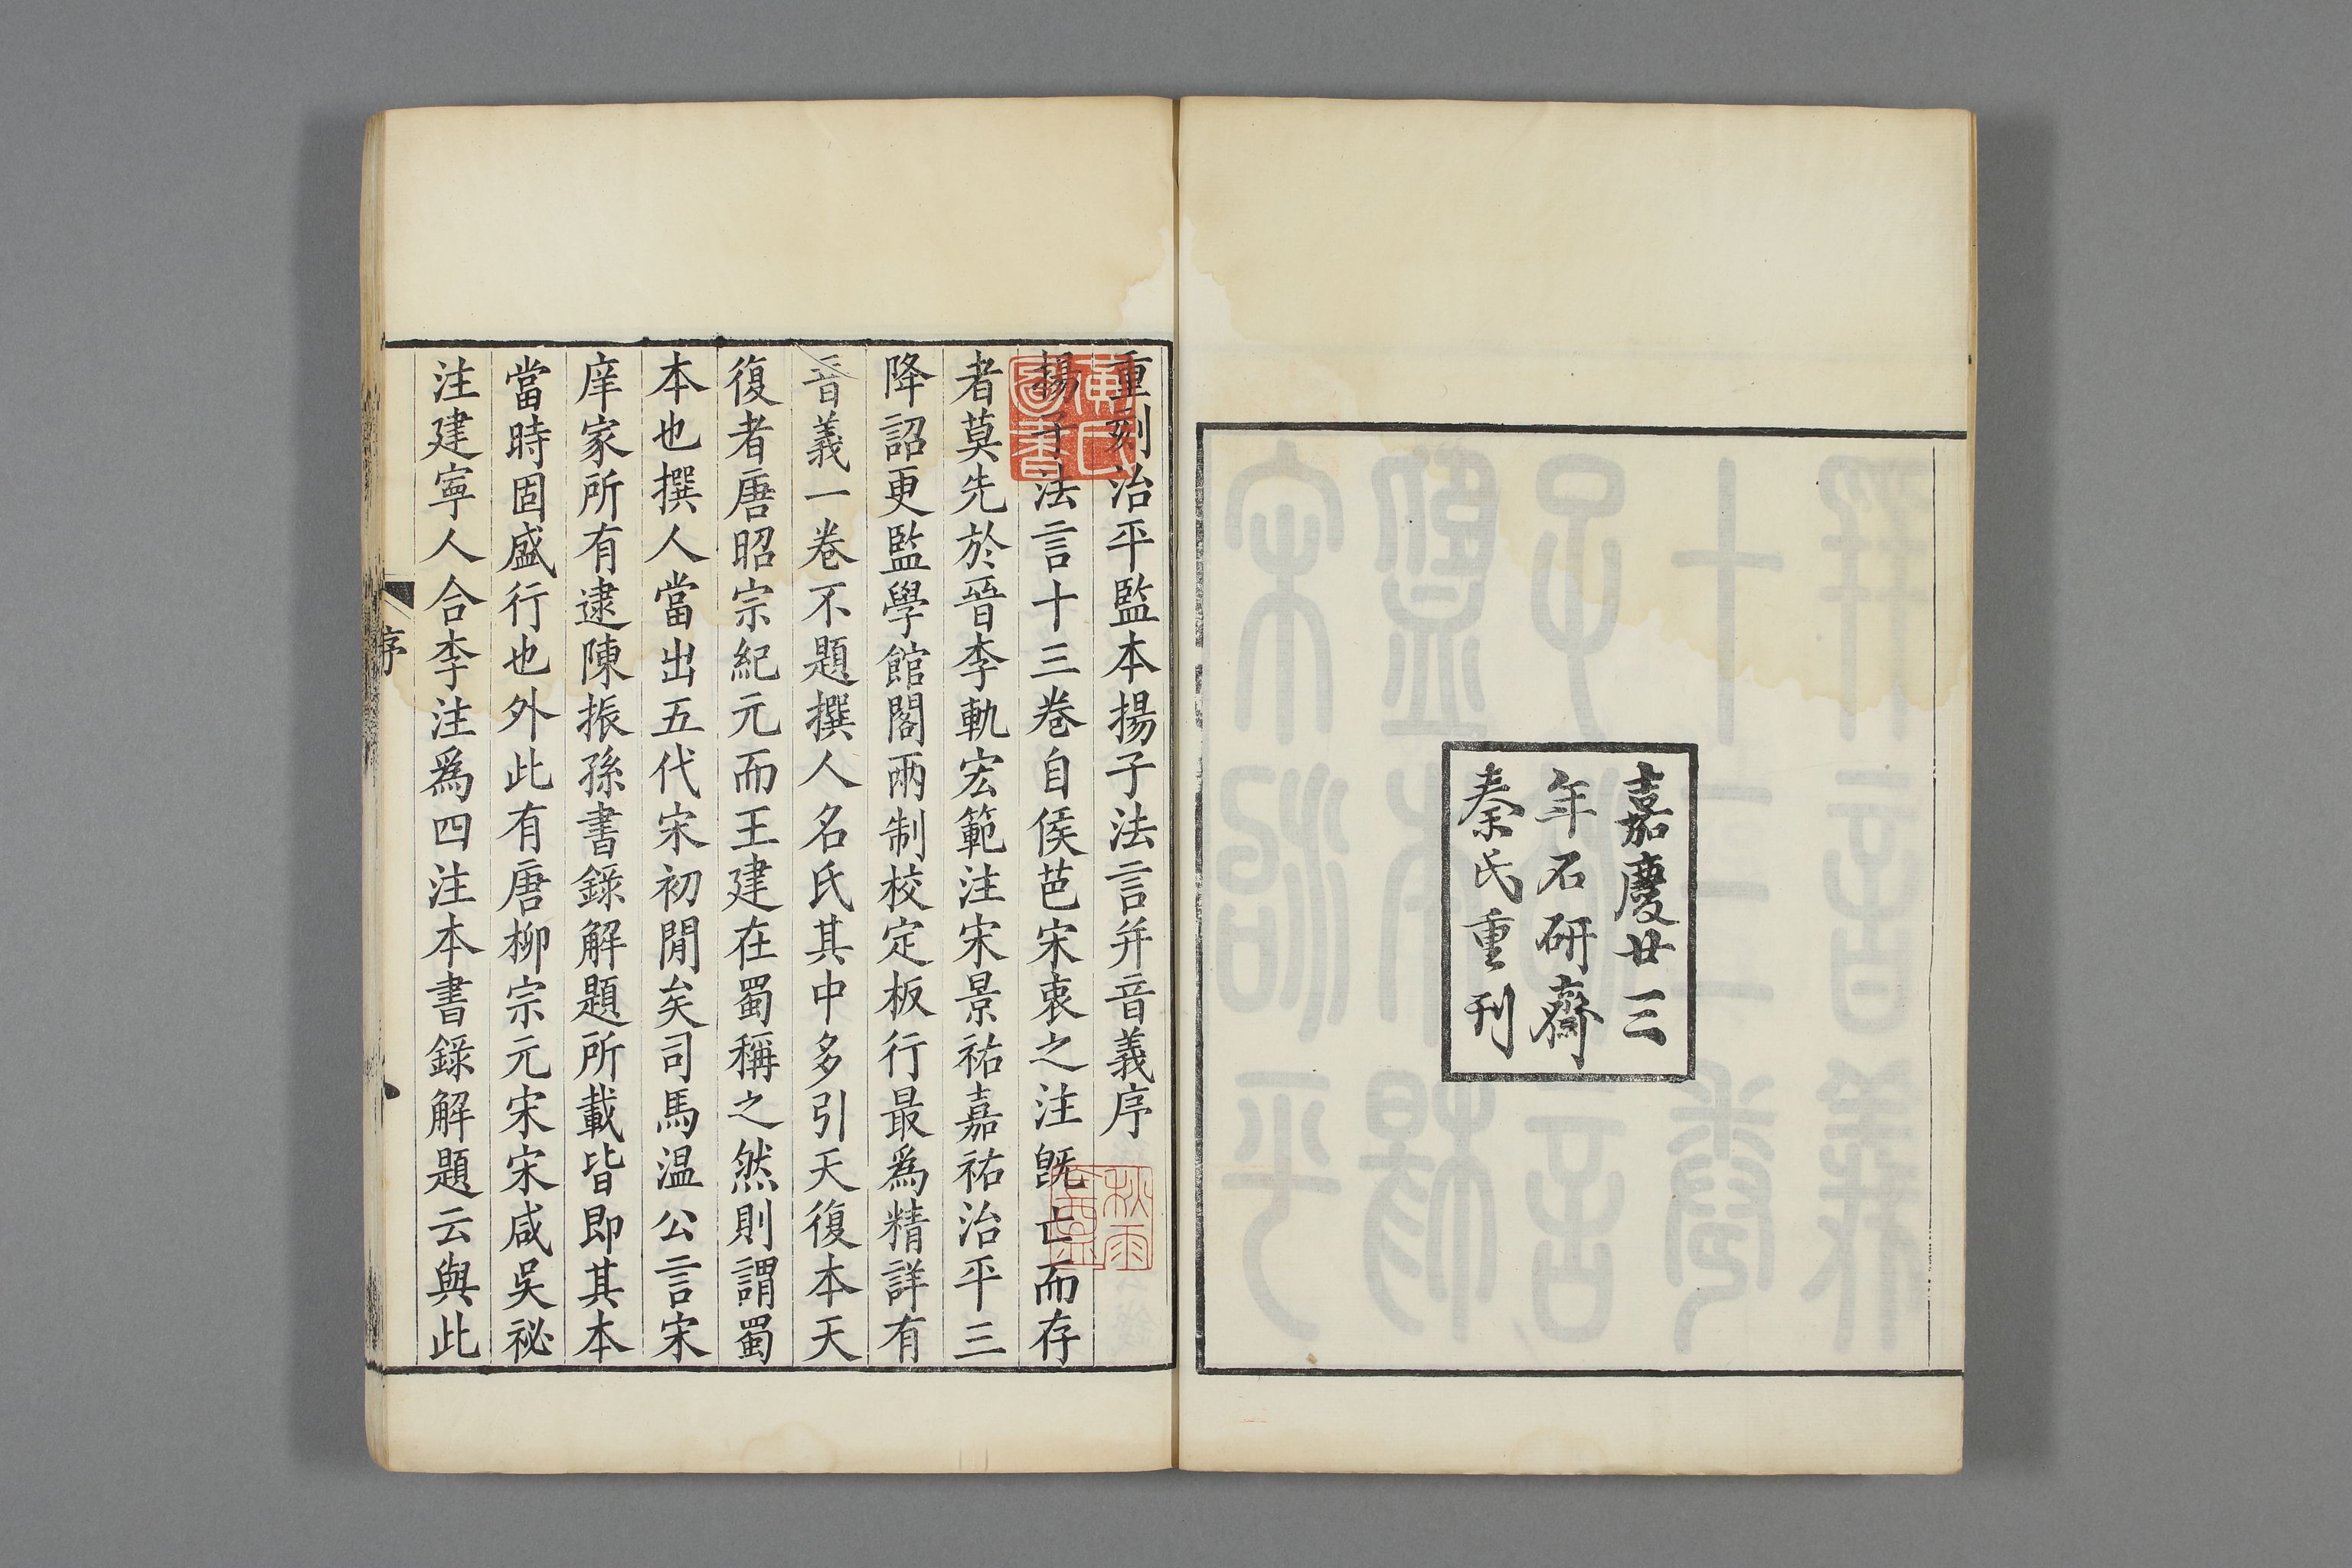 嘉慶廿三
年石研齋
秦氏重刊
重刻治平監本揚子法言并音義序
揚子法言十三卷自侯芭宋衷之注旣亡而存
者莫先於晉李軌宏範注宋景祐嘉祐治平三
降詔更監學館閣兩制校定板行最爲精詳有
音義一卷不題撰人名氏其中多引天復本天
復者唐昭宗紀元而王建在蜀稱之然則謂蜀
本也撰人當出五代宋初閒矣司馬温公言宋
庠家所有逮陳振孫書錄解題所載皆即其本
當時固盛行也外此有唐柳宗元宋宋咸吳祕
注建寧人合李注爲四注本書錄解題云與此
序